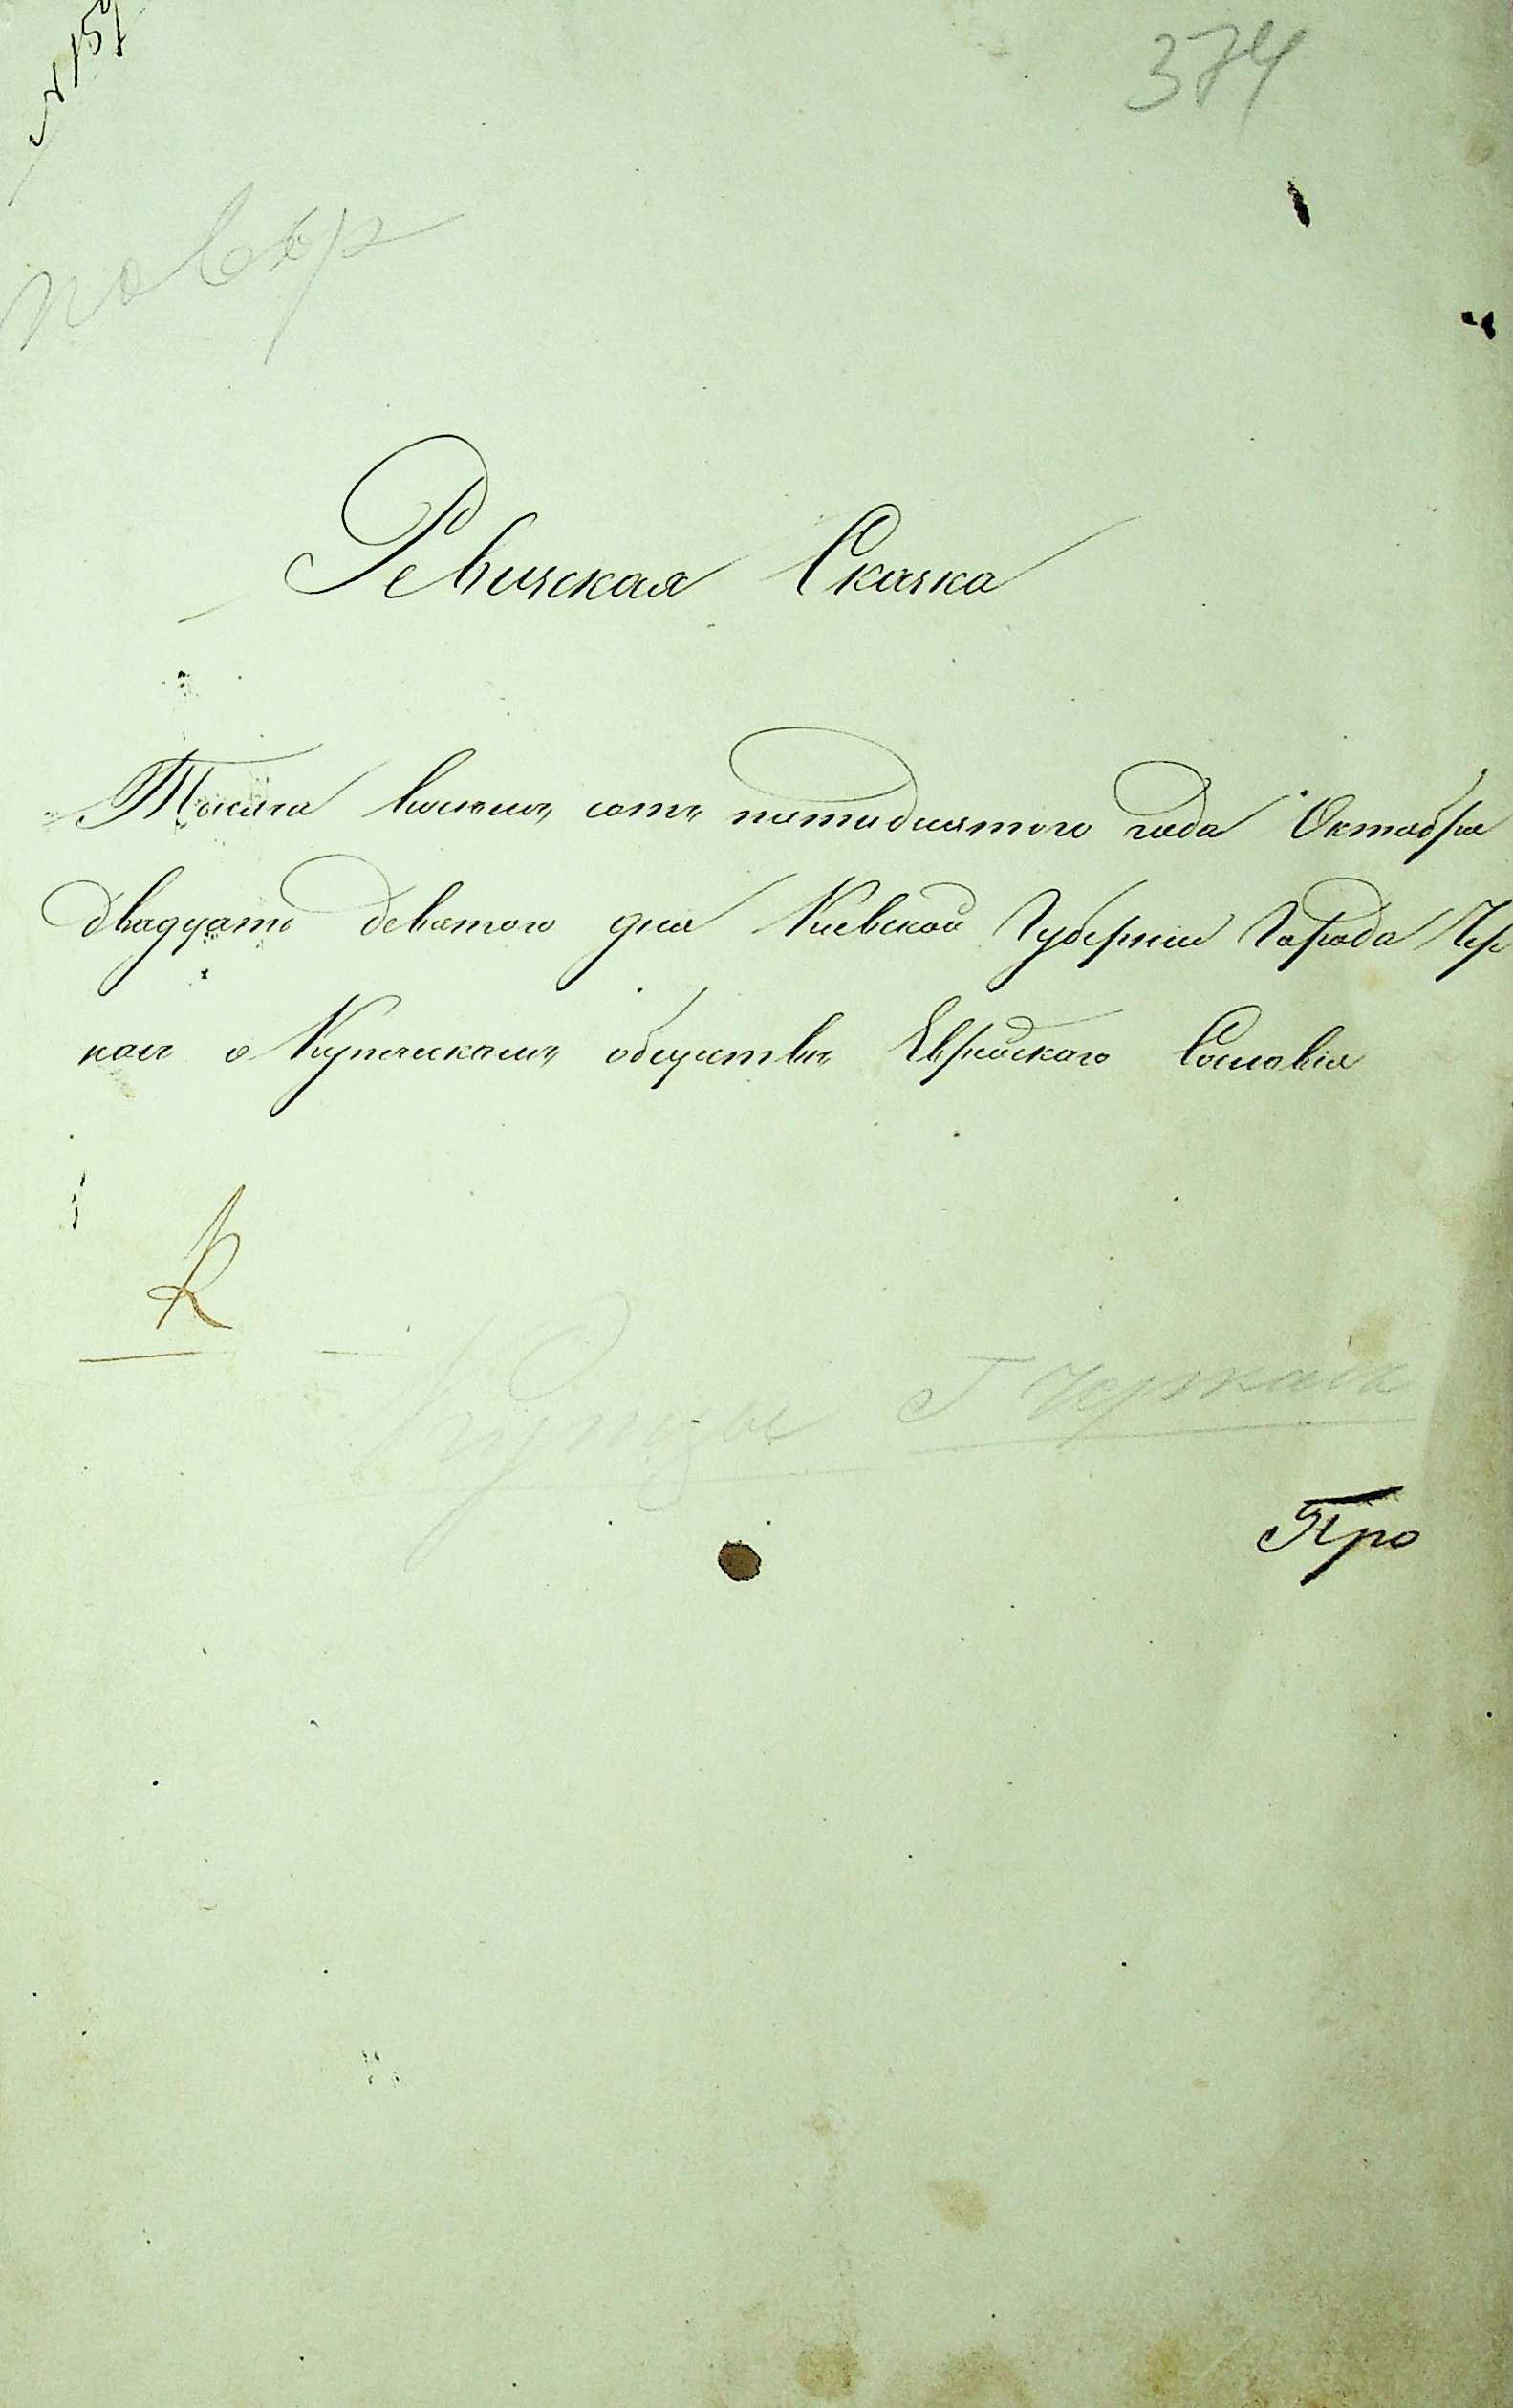 № 157
374
повѣр
Ревизская Сказка
Тысяча восемь сотъ пятидесятого года Октября
двадцать девятого дня Киевской Губернии Города Чер
кас о Купеческомъ обществѣ Еврейского Сословія
К
Купцы Г Черкасъ
Про